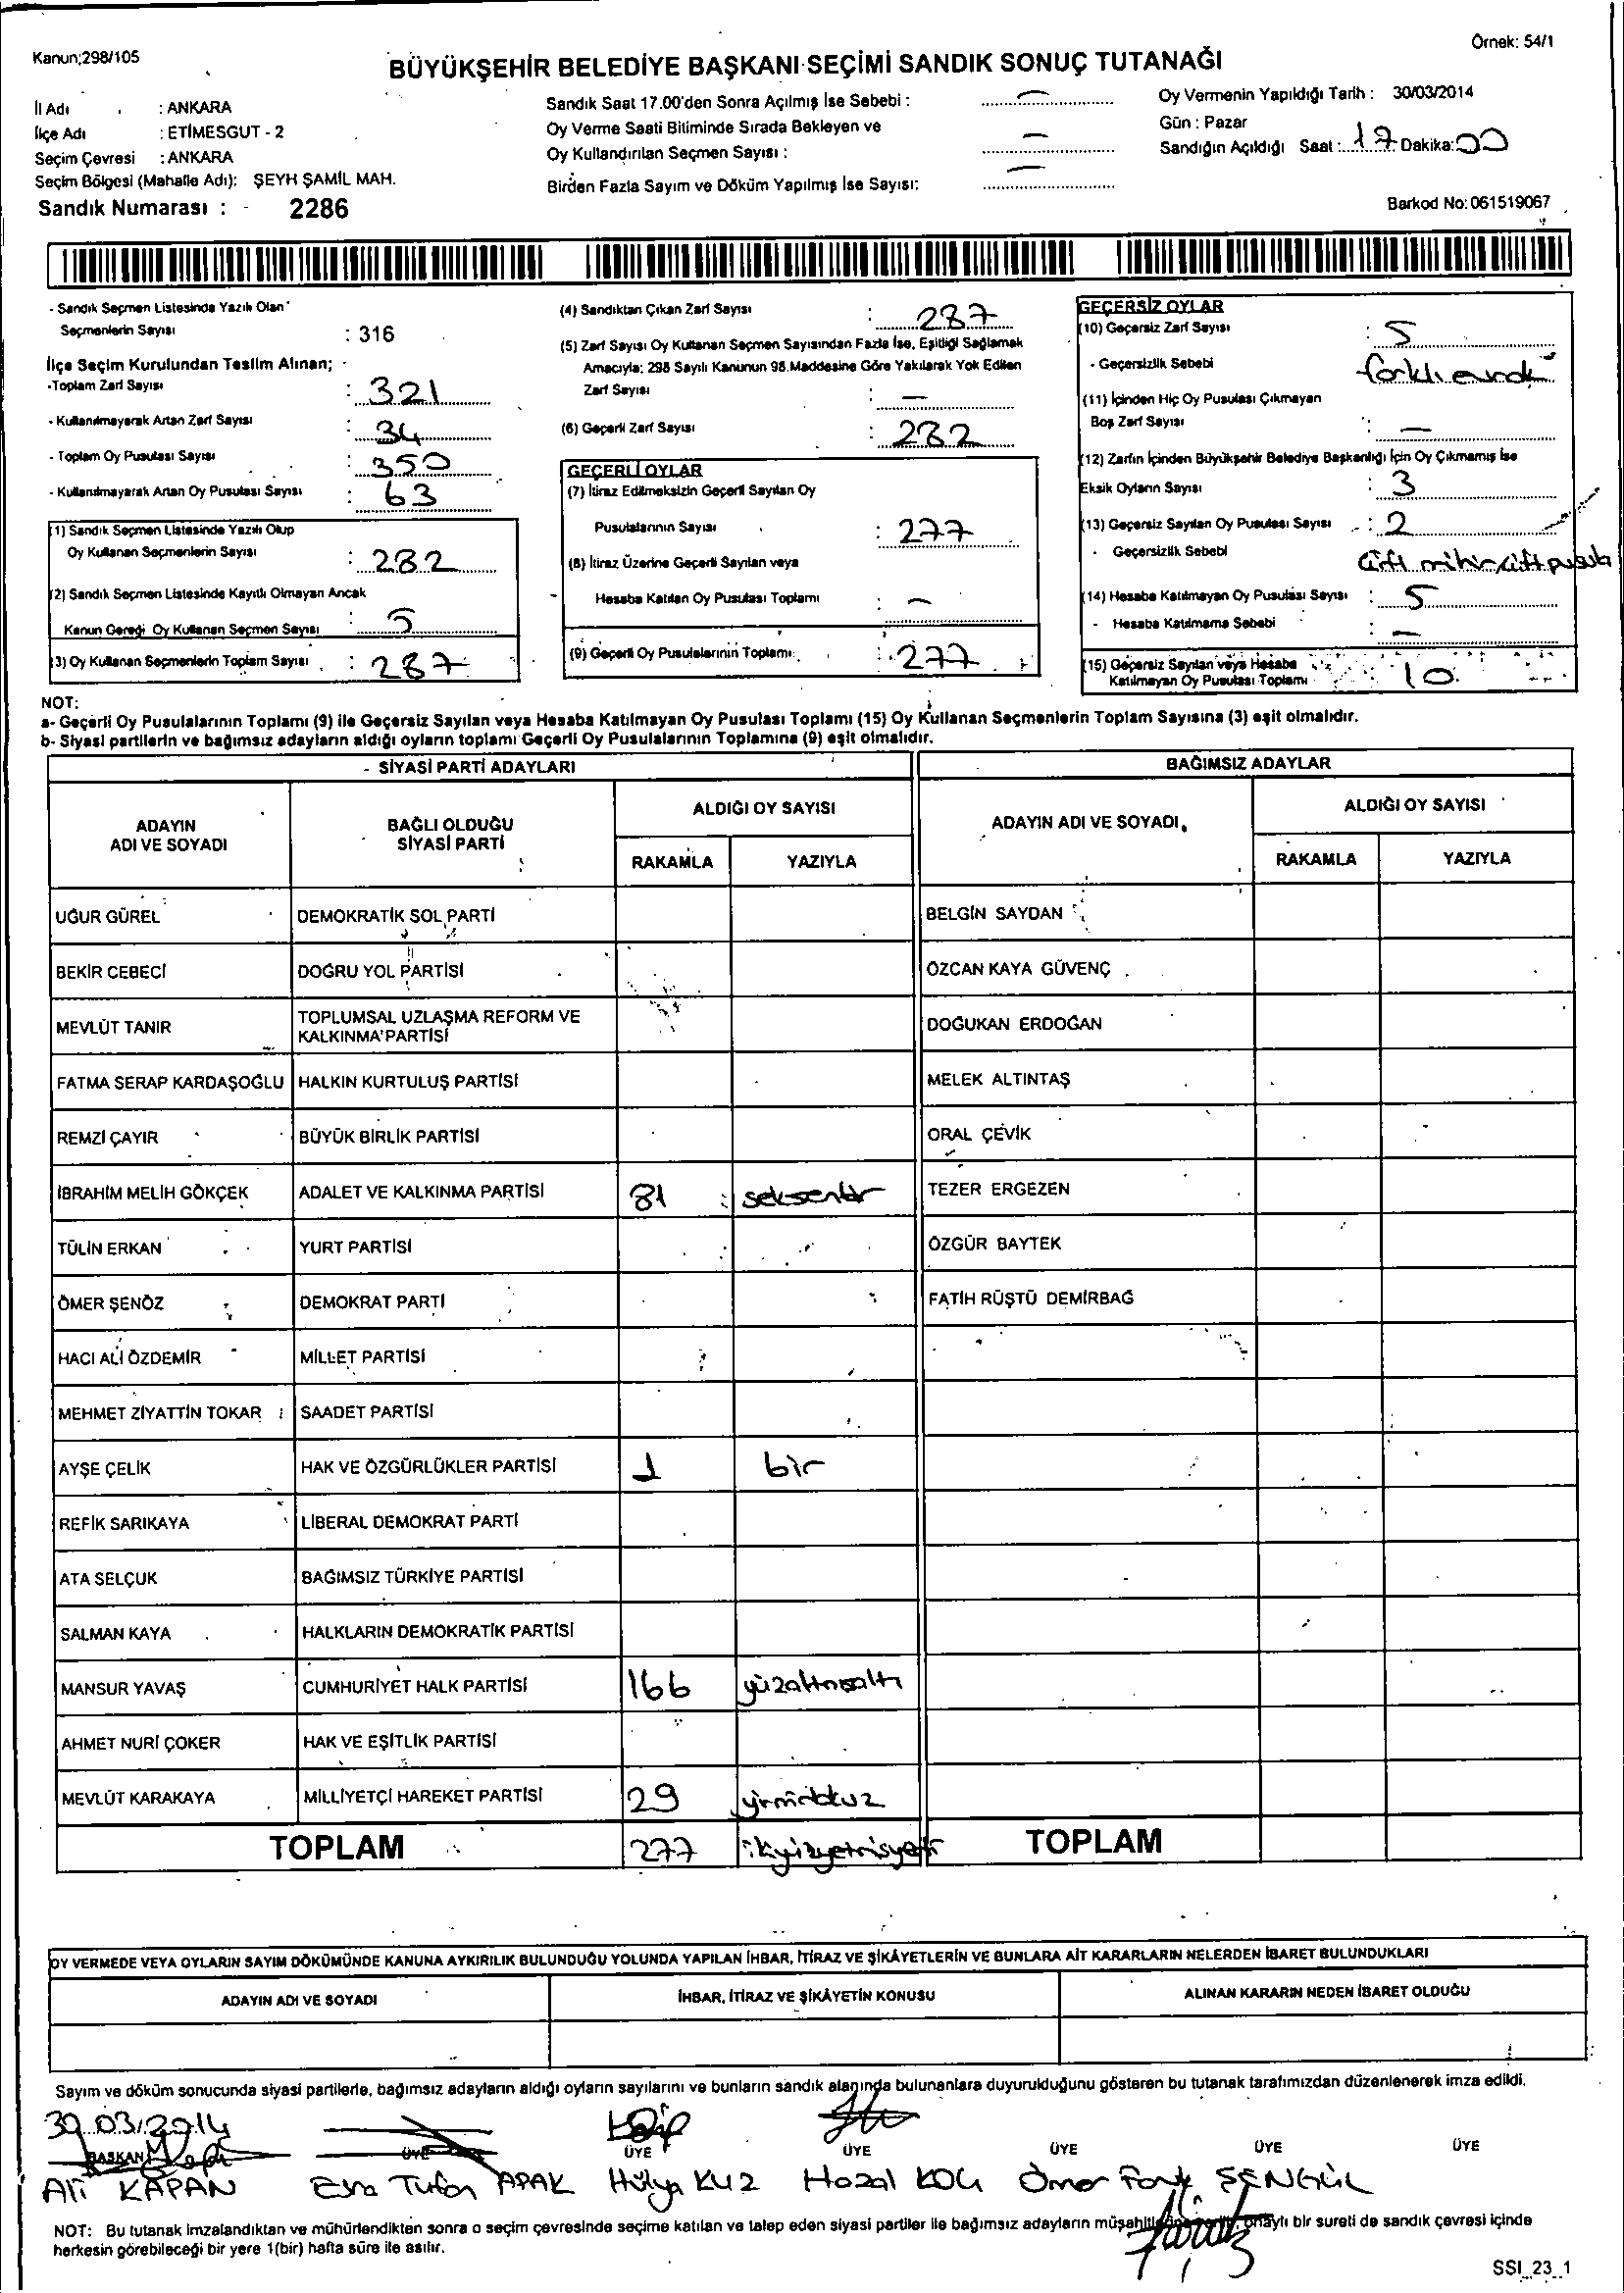 Kanun;298/105
Örnek: 54/1
BÜYÜKŞEHİR BELEDİYE BAŞKANI SEÇİMİ SANDIK SONUÇ TUTANAĞI
İl Adı : ANKARA
İlçe Adı : ETİMESGUT - 2
Seçim Çevresi : ANKARA
Seçim Bölgesi (Mahalle Adı): ŞEYH ŞAMİL MAH.
Sandık Numarası : 2286
Sandık Saat 17.00'den Sonra Açılmış İse Sebebi : —
Oy Verme Saati Bitiminde Sırada Bekleyen ve
Oy Kullandırılan Seçmen Sayısı : —
Birden Fazla Sayım ve Döküm Yapılmış İse Sayısı: —
Oy Vermenin Yapıldığı Tarih : 30/03/2014
Gün : Pazar
Sandığın Açıldığı Saat : 17 Dakika: 00
Barkod No: 061519067
- Sandık Seçmen Listesinde Yazılı Olan
Seçmenlerin Sayısı : 316
İlçe Seçim Kurulundan Teslim Alınan;
-Toplam Zarf Sayısı : 321
- Kullanılmayarak Artan Zarf Sayısı : 34
- Toplam Oy Pusulası Sayısı : 350
- Kullanılmayarak Artan Oy Pusulası Sayısı : 63
(1) Sandık Seçmen Listesinde Yazılı Olup
Oy Kullanan Seçmenlerin Sayısı : 282
(2) Sandık Seçmen Listesinde Kayıtlı Olmayan Ancak
Kanun Gereği Oy Kullanan Seçmen Sayısı : 5
(3) Oy Kullanan Seçmenlerin Toplam Sayısı : 287
(4) Sandıktan Çıkan Zarf Sayısı : 287
(5) Zarf Sayısı Oy Kullanan Seçmen Sayısından Fazla İse, Eşitliği Sağlamak
Amacıyla; 298 Sayılı Kanunun 98.Maddesine Göre Yakılarak Yok Edilen
Zarf Sayısı : —
(6) Geçerli Zarf Sayısı : 282
GEÇERLİ OYLAR
(7) İtiraz Edilmeksizin Geçerli Sayılan Oy
Pusulalarının Sayısı : 277
(8) İtiraz Üzerine Geçerli Sayılan veya
Hesaba Katılan Oy Pusulası Toplamı : —
(9) Geçerli Oy Pusulalarının Toplamı : 277
GEÇERSİZ OYLAR
(10) Geçersiz Zarf Sayısı : 5
- Geçersizlik Sebebi farklı evrak
(11) İçinden Hiç Oy Pusulası Çıkmayan
Boş Zarf Sayısı : —
(12) Zarfın İçinden Büyükşehir Belediye Başkanlığı İçin Oy Çıkmamış İse
Eksik Oyların Sayısı : 3
(13) Geçersiz Sayılan Oy Pusulası Sayısı : 2
- Geçersizlik Sebebi çift mühür, çift pusula
(14) Hesaba Katılmayan Oy Pusulası Sayısı : 5
- Hesaba Katılmama Sebebi : —
(15) Geçersiz Sayılan veya Hesaba
Katılmayan Oy Pusulası Toplamı : 10
NOT:
a- Geçerli Oy Pusulalarının Toplamı (9) ile Geçersiz Sayılan veya Hesaba Katılmayan Oy Pusulası Toplamı (15) Oy Kullanan Seçmenlerin Toplam Sayısına (3) eşit olmalıdır.
b- Siyasi partilerin ve bağımsız adayların aldığı oyların toplamı Geçerli Oy Pusulalarının Toplamına (9) eşit olmalıdır.
SİYASİ PARTİ ADAYLARI BAĞIMSIZ ADAYLAR
ADAYIN ADI VE SOYADI BAĞLI OLDUĞU SİYASİ PARTİ ALDIĞI OY SAYISI ADAYIN ADI VE SOYADI ALDIĞI OY SAYISI
RAKAMLA YAZIYLA RAKAMLA YAZIYLA
UĞUR GÜREL DEMOKRATİK SOL PARTİ BELGİN SAYDAN
BEKİR CEBECİ DOĞRU YOL PARTİSİ ÖZCAN KAYA GÜVENÇ
MEVLÜT TANIR TOPLUMSAL UZLAŞMA REFORM VE KALKINMA PARTİSİ DOĞUKAN ERDOĞAN
FATMA SERAP KARDAŞOĞLU HALKIN KURTULUŞ PARTİSİ MELEK ALTINTAŞ
REMZİ ÇAYIR BÜYÜK BİRLİK PARTİSİ ORAL ÇEVİK
İBRAHİM MELİH GÖKÇEK ADALET VE KALKINMA PARTİSİ 81 seksenbir TEZER ERGEZEN
TÜLİN ERKAN YURT PARTİSİ ÖZGÜR BAYTEK
ÖMER ŞENÖZ DEMOKRAT PARTİ FATİH RÜŞTÜ DEMİRBAĞ
HACI ALİ ÖZDEMİR MİLLET PARTİSİ
MEHMET ZİYATTİN TOKAR SAADET PARTİSİ
AYŞE ÇELİK HAK VE ÖZGÜRLÜKLER PARTİSİ 1 bir
REFİK SARIKAYA LİBERAL DEMOKRAT PARTİ
ATA SELÇUK BAĞIMSIZ TÜRKİYE PARTİSİ
SALMAN KAYA HALKLARIN DEMOKRATİK PARTİSİ
MANSUR YAVAŞ CUMHURİYET HALK PARTİSİ 166 yüzaltmışaltı
AHMET NURİ ÇOKER HAK VE EŞİTLİK PARTİSİ
MEVLÜT KARAKAYA MİLLİYETÇİ HAREKET PARTİSİ 29 yirmidokuz
TOPLAM 277 ikiyüzyetmişyedi TOPLAM
OY VERMEDE VEYA OYLARIN SAYIM DÖKÜMÜNDE KANUNA AYKIRILIK BULUNDUĞU YOLUNDA YAPILAN İHBAR, İTİRAZ VE ŞİKÂYETLERİN VE BUNLARA AİT KARARLARIN NELERDEN İBARET BULUNDUKLARI
ADAYIN ADI VE SOYADI İHBAR, İTİRAZ VE ŞİKÂYETİN KONUSU ALINAN KARARIN NEDEN İBARET OLDUĞU
Sayım ve döküm sonucunda siyasi partilerle, bağımsız adayların aldığı oyların sayılarını ve bunların sandık alanında bulunanlara duyurulduğunu gösteren bu tutanak tarafımızdan düzenlenerek imza edildi.
30.03.2014
BAŞKAN ÜYE ÜYE ÜYE ÜYE ÜYE ÜYE
Ali KAPAN Esra Tufan APAK Hülya KUZ Hazal KOÇ Ömer Faruk ŞENGÜL
NOT: Bu tutanak imzalandıktan ve mühürlendikten sonra o seçim çevresinde seçime katılan ve talep eden siyasi partiler ile bağımsız adayların onaylı bir sureti de sandık çevresi içinde
herkesin görebileceği bir yere 1(bir) hafta süre ile asılır.
SSI_23_1